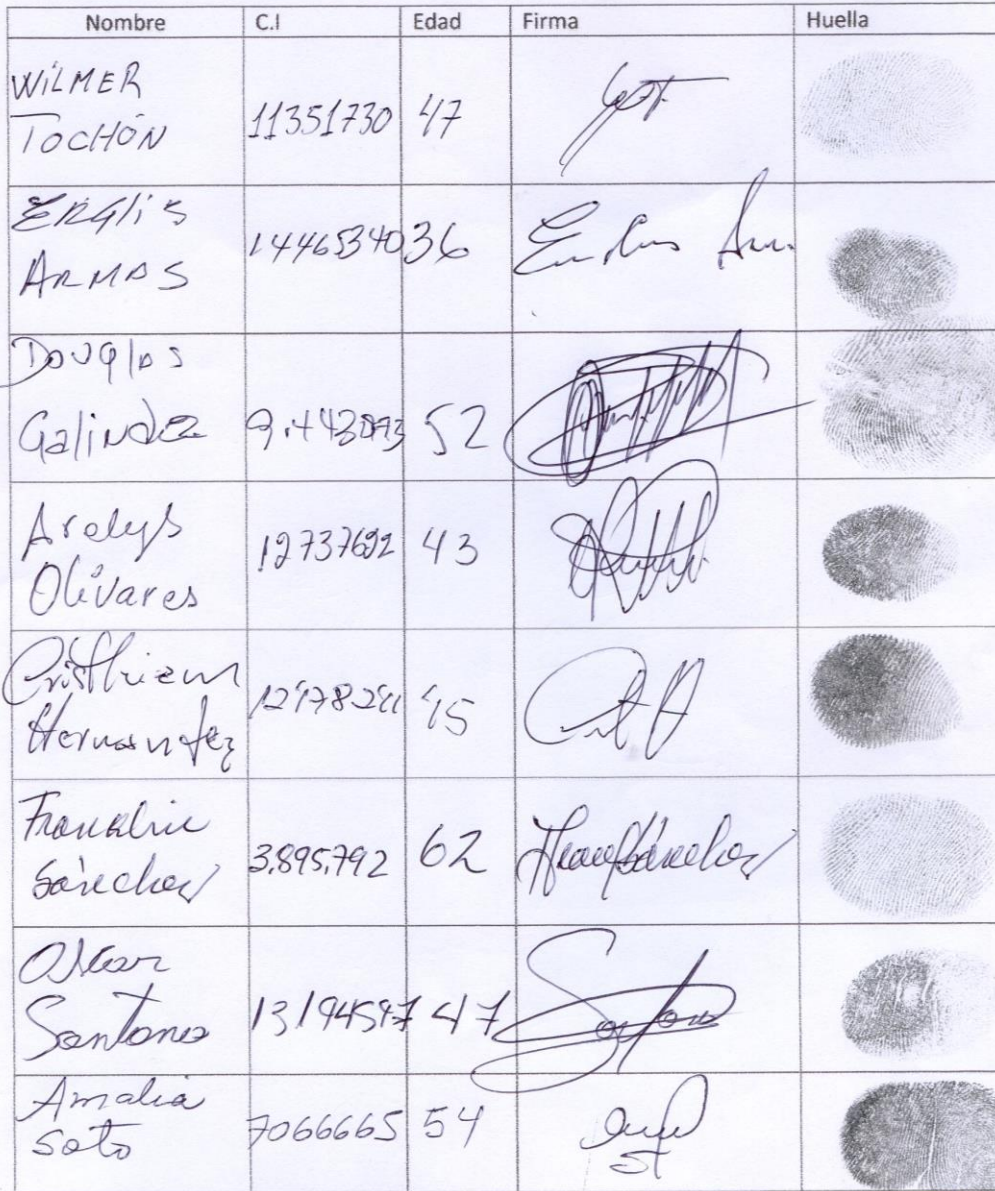 Nombre C.I Edad Firma Huella
WILMER
TOCHÓN 11351730 47
ERGLIS
ARMAS 14465340 36
Douglas
Galindez 52
Arelys
Olivares 12737692 43
Cristhiam
Hernandez 45
Franklin
Sánchez 3.895.792 62
Oscar
Santana 13194597 47
Amalia
Soto 7066665 54